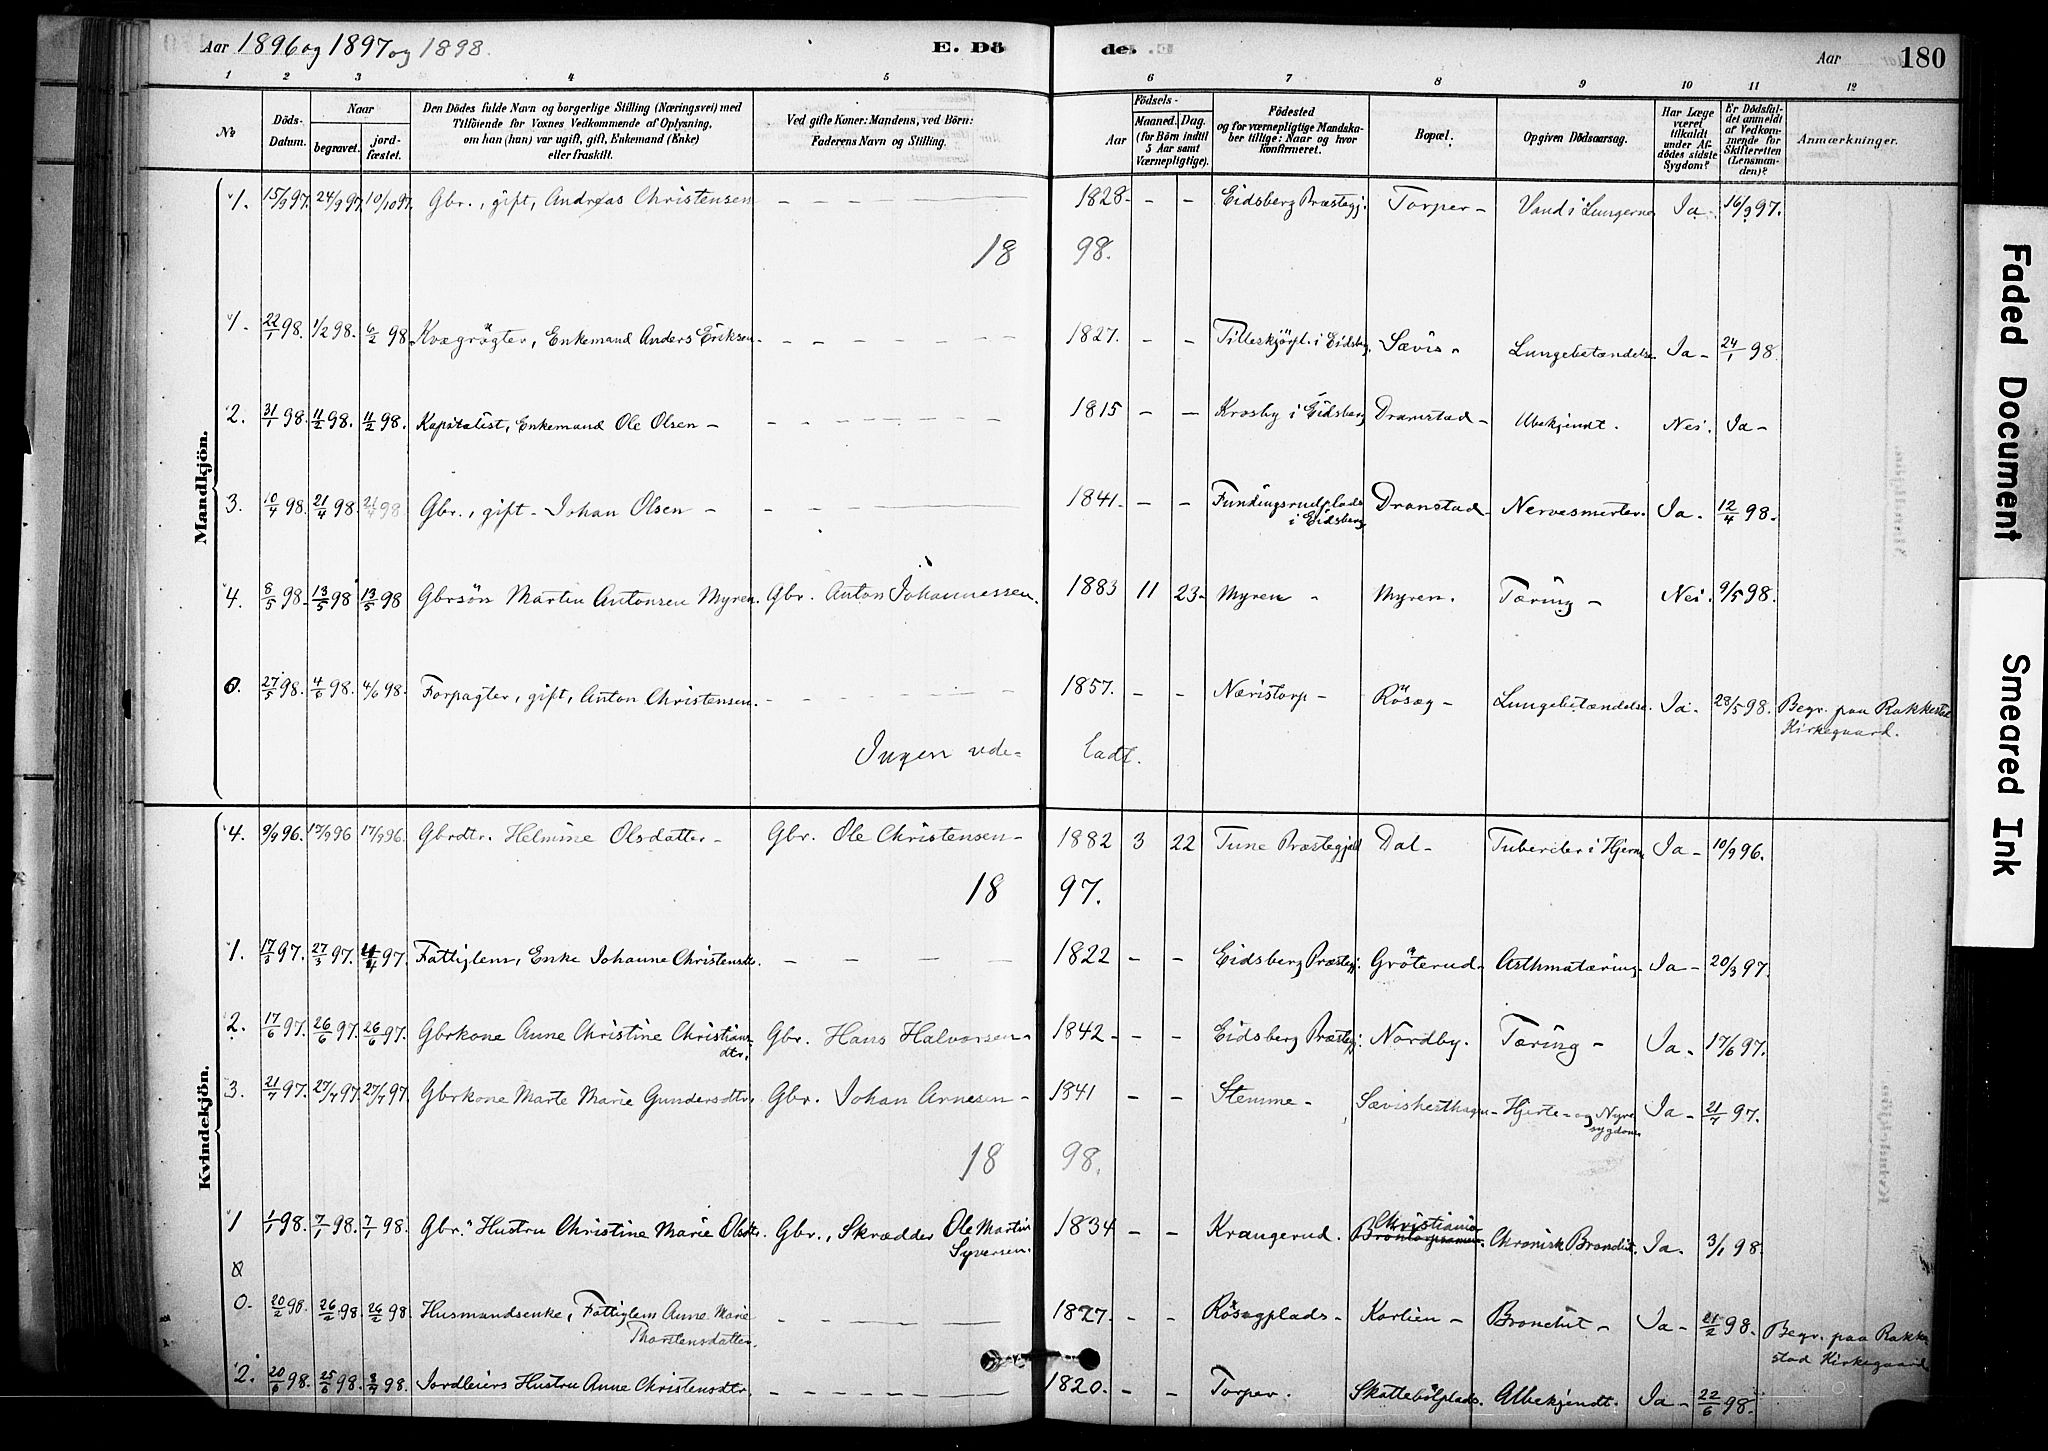 Aar 1896 og 1897 og 1898
E. Dö de.
Aar 180
1 2 3 4 5 6 7 8 9 10 11 12
No
Döds-Datum.
Naar
begravet.
jord-fæstet.
Den Dödes fulde Navn og borgerlige Stilling (Næringsvei) med
Tilföiende for Voxnes Vedkommende af Oplysning,
om han (hun) var ugift, gift, Enkemand (Enke)
eller fraskilt.
Ved gifte Koner: Mandens, ved Börn:
Faderens Navn og Stilling.
Födsels-
Aar
Maaned. Dag.
(for Börn indtil
5 Aar samt
Værnepligtige).
Födested
og for værnepligtige Mandska-
ber tillige: Naar og hvor
konfirmeret.
Bopæl.
Opgiven Dödsaarsag.
Har Læge
været
tilkaldt
under Af-
dödes sidste
Sygdom?
Er Dödsfal-
det anmeldt
af Vedkom-
mende for
Skifteretten
(Lensman-
den)?
Anmærkninger.
Mandkjön.
1. 15/9 97. 24/9 97. 10/10 97. Gbr., gift, Andreas Christensen - - - 1828 - - - Eidsberg Præstegj. Torper - Vand i Lungerne Ja 16/9 97.
18 98.
1. 22/1 98. 1/2 98. 6/2 98. Kvægrögter, Enkemand Anders Eriksen - - - 1827. - - Tilleskjörpl. i Eidsbg. Sævis - Lungebetændelse Ja - 24/1 98.
2. 31/1 98. 11/2 98. 11/2 98. Kapitalist, Enkemand Ole Olsen - - - 1815 - - Krosby i Eidsberg Dramstad - Ubekjendt. Nei. Ja -
3. 10/4 98. 21/4 98. 21/4 98. Gbr., gift - Johan Olsen - - - 1841. - - Fundingsrudplads
i Eidsberg Dramstad - Nervesmerter. Ja. 12/4 98.
4. 8/5 98. 13/5 98 13/5 98 Gbrsön Martin Antonsen Myren Gbr. Anton Johannessen. 1883 11 23 - Myren - Myren. Tæring - Nei. 9/5 98.
0. 27/5 98. 4/6 98. 4/6 98. Forpagter, gift, Anton Christensen. - - - 1857. - - Næristorp - Rösæg - Lungebetændelse. Ja. 28/5 98. Begr. paa Rakkestad
Kirkegaard.
Ingen ude- ladt.
Kvindekjön.
4. 9/9 96. 17/9 96 17/9 96. Gbrdtr. Helmine Olsdatter - Gbr. Ole Christensen - 1882 3 22 Tune Præstegjæld Dal - Tuberkler i Hjernen Ja - 10/9 96.
18 97.
1. 17/3 97. 27/3 97. 4/4 97. Fattiglem, Enke Johanne Christensdtr. - - - 1822 - - Eidsberg Præstegj. Gröterud - Asthmatæring Ja - 20/3 97.
2. 17/6 97. 26/6 97. 26/6 97. Gbrkone Anne Christine Christians
dtr. Gbr. Hans Halvorsen - 1842 - - - Eidsberg Præstegj. Nordby. Tæring - Ja - 17/6 97.
3. 21/7 97. 27/7 97. 27/7 97. Gbrkone Marte Marie Gundersdtr. Gbr. Johan Arnesen - 1841 - - Stemme - Sævishesthagen - Hjerte- og Nyre
sygdom Ja - 21/7 97.
18 98.
1 1/1 98. 7/1 98. 7/1 98. Gbr. Hustru Christine Marie Olsdtr. Gbr., Skrædder Ole Martin
Syversen. 1834 - - Krangerud. Christiania Chronisk Bronchit. Ja. 3/1 98.
0. 20/2 98. 26/2 98 26/2 98 Husmandsenke, Fattiglem Anne Marie
Thorstensdatter. - - - 1827. - - Rösægplads - Korlien - Bronchit - Ja - 21/2 98. Begr. paa Rakke
stad Kirkegaard
2. 20/6 98. 25/6 98. 3/7 98. Jordleiers Hustru Anne Christensdtr. - - - 1820. - - Torper. Skattebölplads. Ubekjendt. Ja - 22/6 98.
Faded Document
Smeared Ink